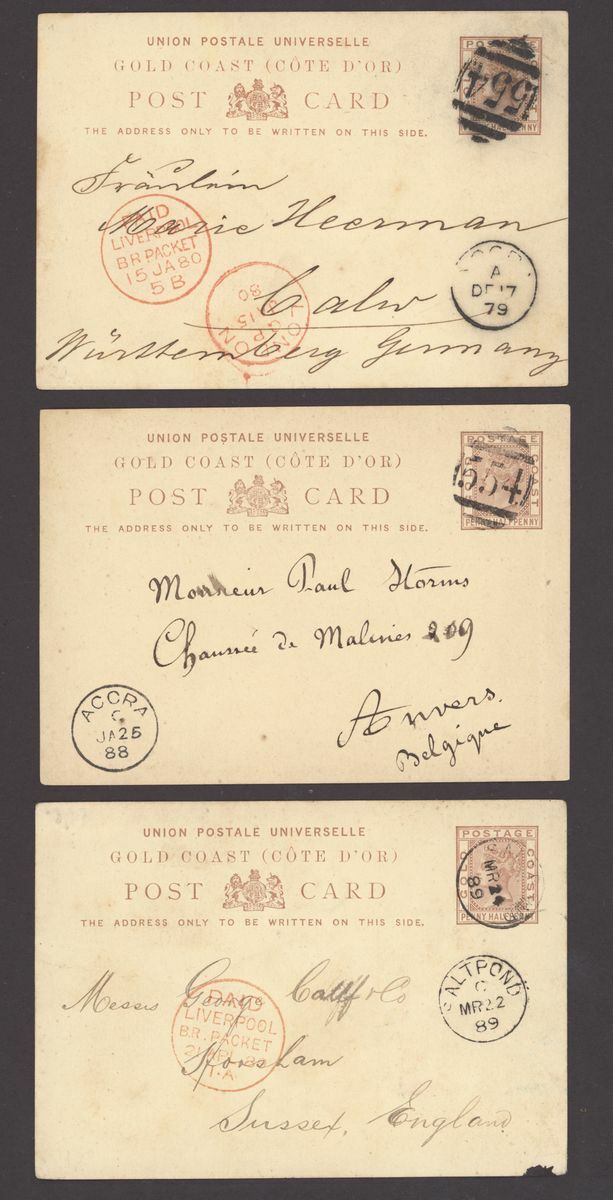 UNION POSTALE UNIVERSELLE
GOLD COAST (CÔTE D'OR)
POST CARD
THE ADDRESS ONLY TO BE WRITTEN ON THIS SIDE.
POSTAGE
554
PENNY
Fräulein
Marie Heerman
PAID
LIVERPOOL
BR. PACKET
15 JA 80
5 B
LONDON
15
80
A
DE 17
79
Calw
Württemberg Germany
UNION POSTALE UNIVERSELLE
GOLD COAST (CÔTE D'OR)
POST CARD
THE ADDRESS ONLY TO BE WRITTEN ON THIS SIDE.
POSTAGE
COAST
554
PENNY HALFPENNY
Monsieur Paul Storms
Chaussée de Malines 209
Anvers.
Belgique
ACCRA
C
JA 25
88
UNION POSTALE UNIVERSELLE
GOLD COAST (CÔTE D'OR)
POST CARD
THE ADDRESS ONLY TO BE WRITTEN ON THIS SIDE.
POSTAGE
GOLD COAST
PENNY HALFPENNY
MR 24
89
SALTPOND
C
MR 22
89
Messrs George &Co
PAID
LIVERPOOL
BR. PACKET
Horsham
Sussex, England